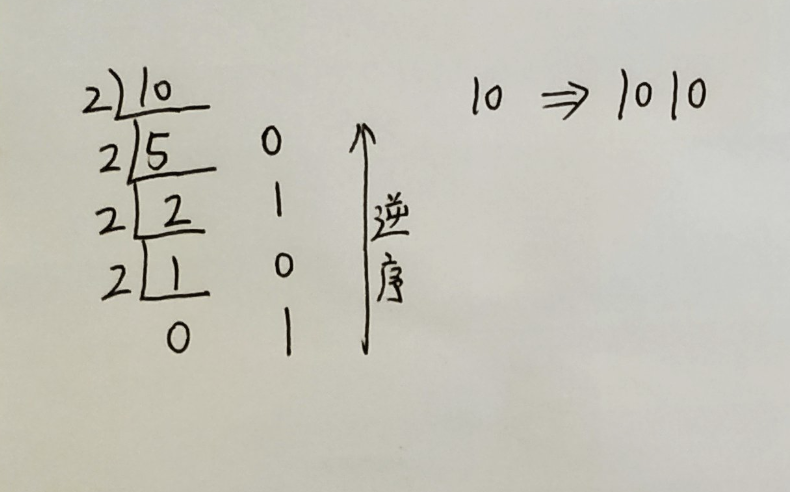 2 10 10 ⇒ 1010
2 5 0
2 2 1
2 1 0
0 1
逆序